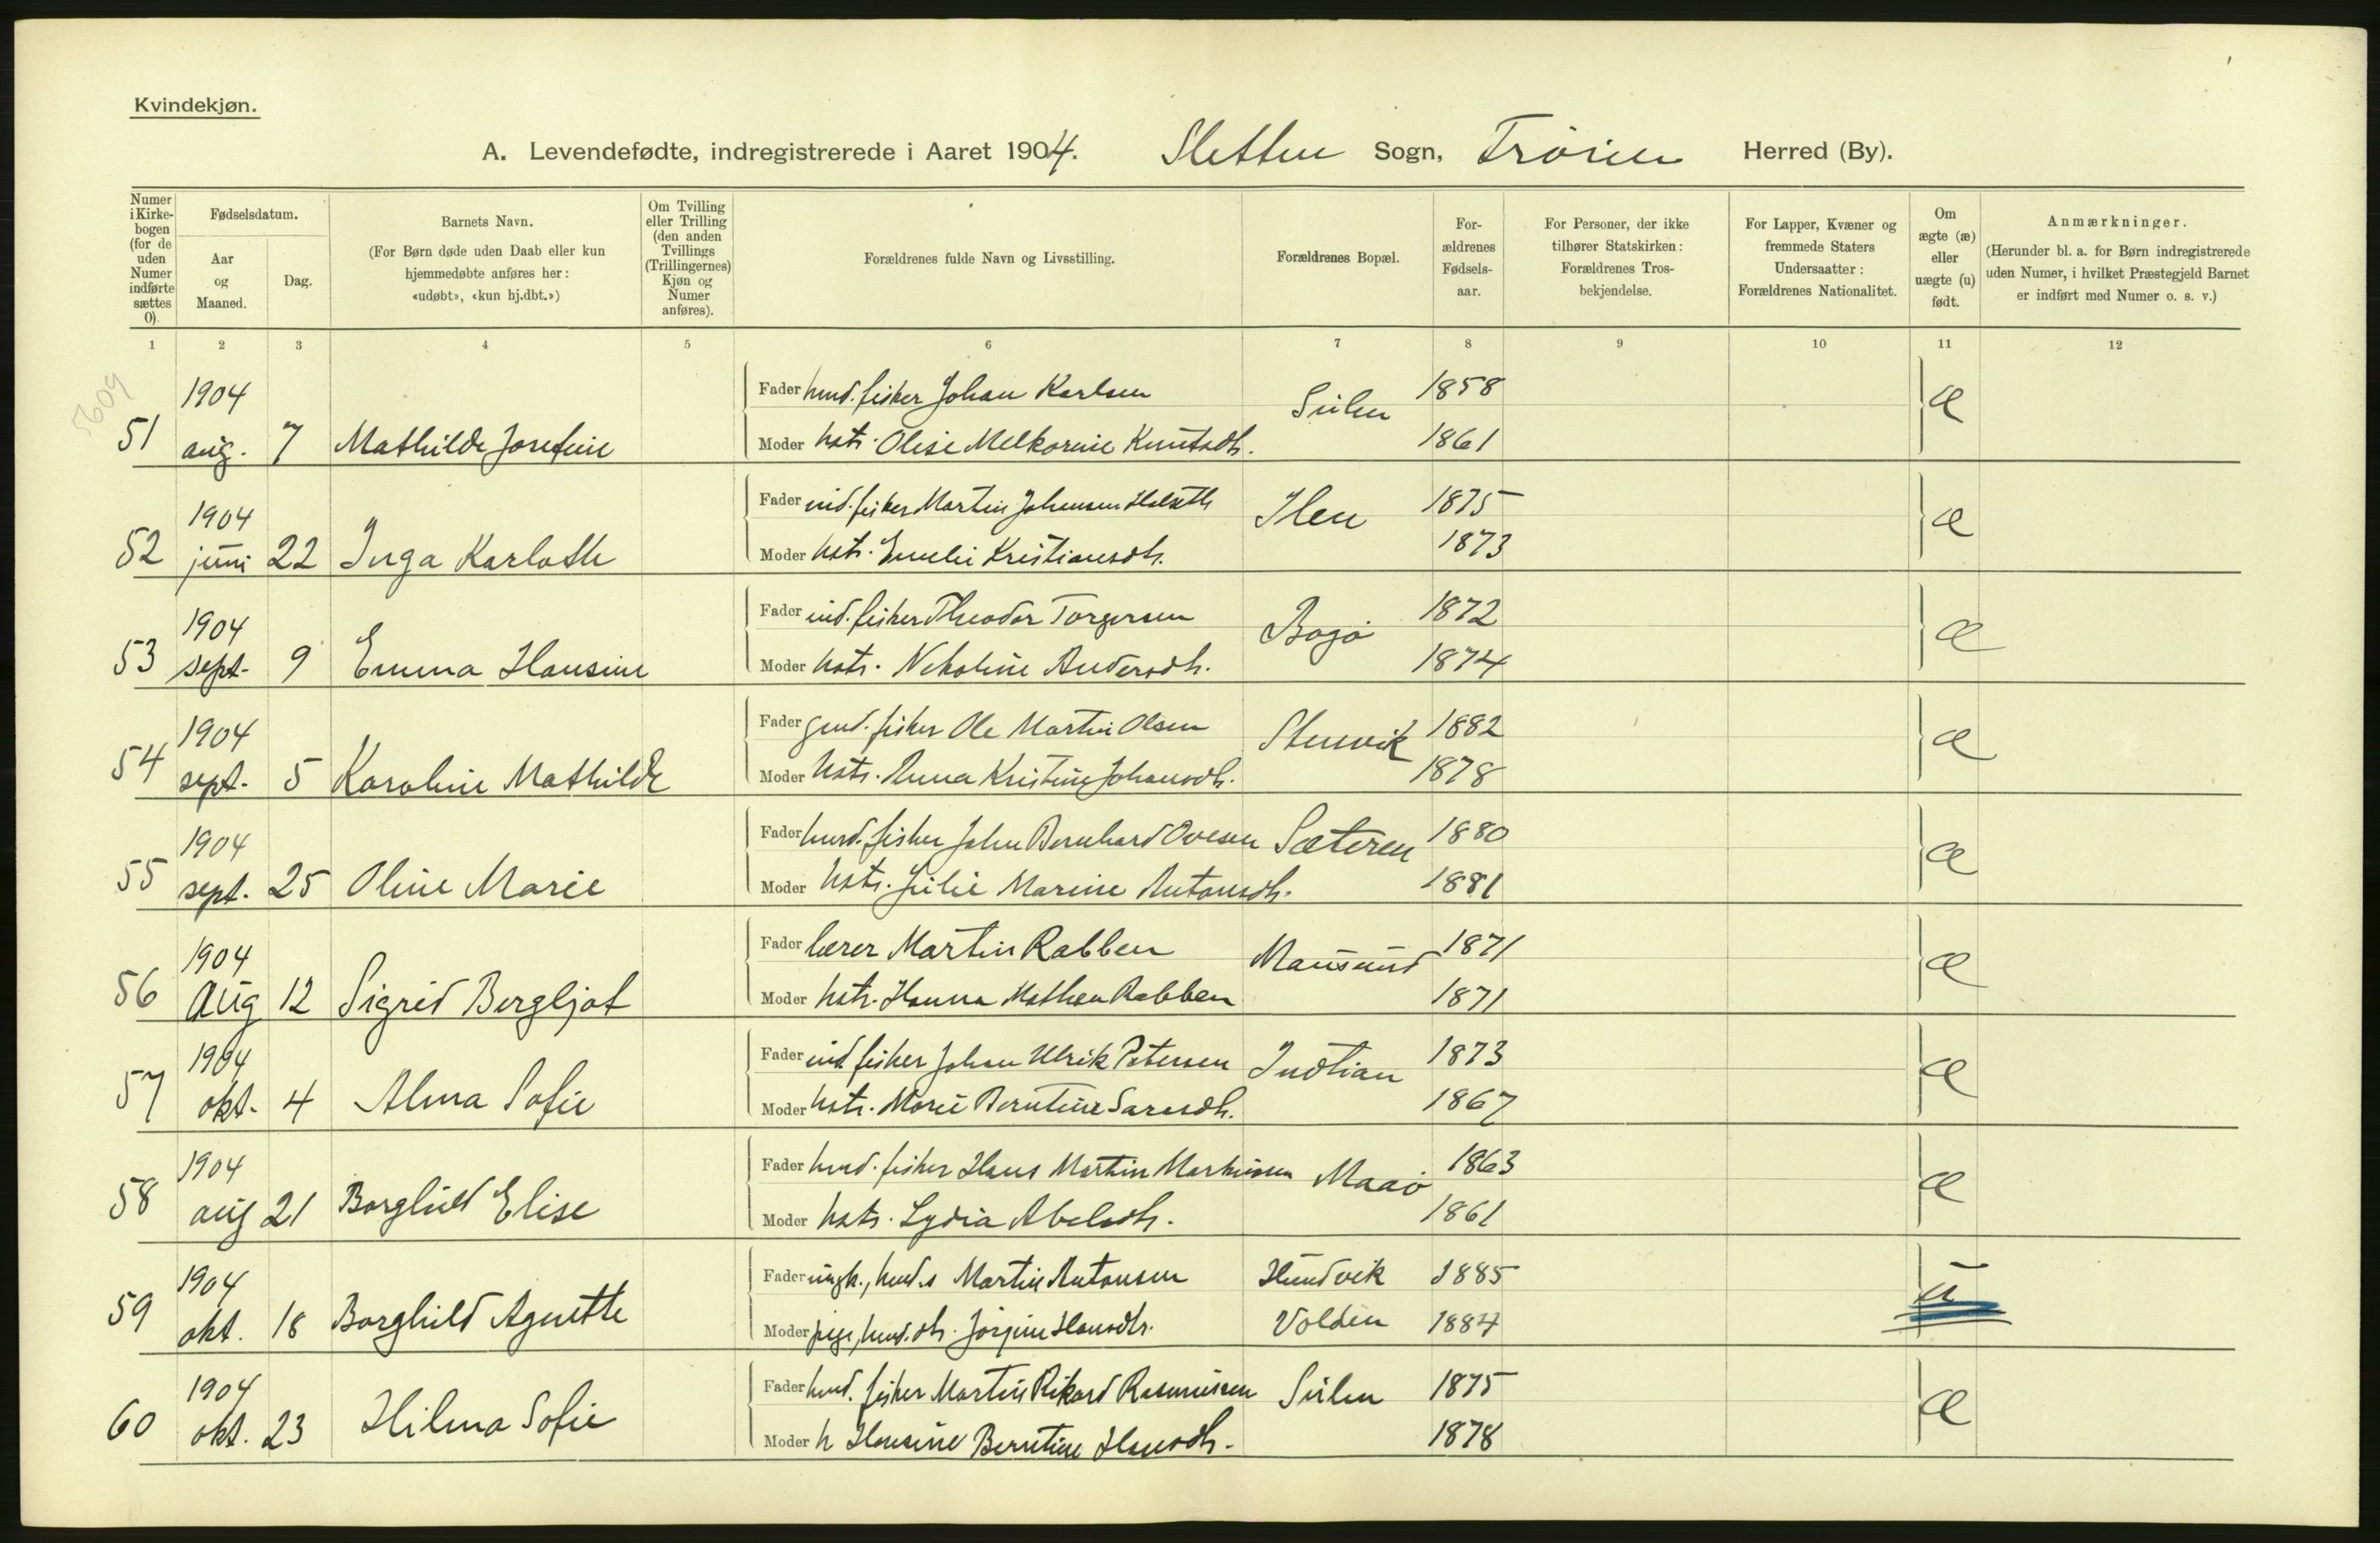 Kvindekjøn.
A. Levendefødte, indregistrerede i Aaret 1904. Sletten Sogn, Frøien Herred (By).
Numer i Kirkebogen (for de uden Numer indførte sættes 0).
Fødselsdatum.
Aar og Maaned.
Dag.
Barnets Navn.
(For Børn døde uden Daab eller kun hjemmedøbte anføres her: «udøbt», «kun hj.dbt.»)
Om Tvilling eller Trilling (den anden Tvillings (Trillingernes) Kjøn og Numer anføres).
Forældrenes fulde Navn og Livsstilling.
Forældrenes Bopæl.
Forældrenes Fødselsaar.
For Personer, der ikke tilhører Statskirken: Forældrenes Trosbekjendelse.
For Lapper, Kvæner og fremmede Staters Undersaatter: Forældrenes Nationalitet.
Om ægte (æ) eller uægte (u) født.
Anmærkninger.
(Herunder bl. a. for Børn indregistrerede uden Numer, i hvilket Præstegjeld Barnet er indført med Numer o. s. v.)
1 2 3 4 5 6 7 8 9 10 11 12
5609
1904 Fader husd. fisker Johan Karlsen Sulen 1858 æ
51 aug. 7 Mathilde Josefine Moder hstr. Olise Melkorine Knutsdtr. 1861
1904 Fader ind. fisker Martin Johansen Halseth Ilen 1875 æ
52 juni 22 Inga Karlotte Moder hstr. Emelie Kristiansdtr. 1873
1904 Fader ind. fisker Theodor Torgersen Bogø 1872 æ
53 sept. 9 Emma Hansine Moder hstr. Nekoline Andersdtr. 1874
1904 Fader gmd. fisker Ole Martin Olsen Stensvik 1882 æ
54 sept. 5 Karoline Mathilde Moder hstr. Anna Kristine Johansdtr. 1878
1904 Fader husd. fisker John Bernhard Ovesen Sæteren 1880 æ
55 sept. 25 Oline Marie Moder hstr. Julie Marine Antonsdtr. 1881
1904 Fader lærer Martin Rabben Mausund 1871 æ
56 Aug 12 Sigrid Bergljot Moder hstr. Hanna Mathea Rabben 1871
1904 Fader ind. fisker Johan Ulrik Petersen Indtian 1873 æ
57 okt. 4 Alma Sofie Moder hstr. Marie Berntine Sarasdtr. 1867
1904 Fader husd. fisker Hans Martin Markussen Maaø 1863 æ
58 aug 21 Borghild Elise Moder hstr. Lydia Abelsdtr. 1861
1904 Fader ungk., husd.s Martin Antonsen Hundvik 1885 u
59 okt. 18 Borghild Agnette Moder pige, husd. dtr. Jørgine Hansdtr. Volden 1884
1904 Fader husd. fisker Martin Rikard Rasmussen Sulen 1875 æ
60 okt. 23 Hilma Sofie Moder h Hansine Berntine Hansdtr. 1878